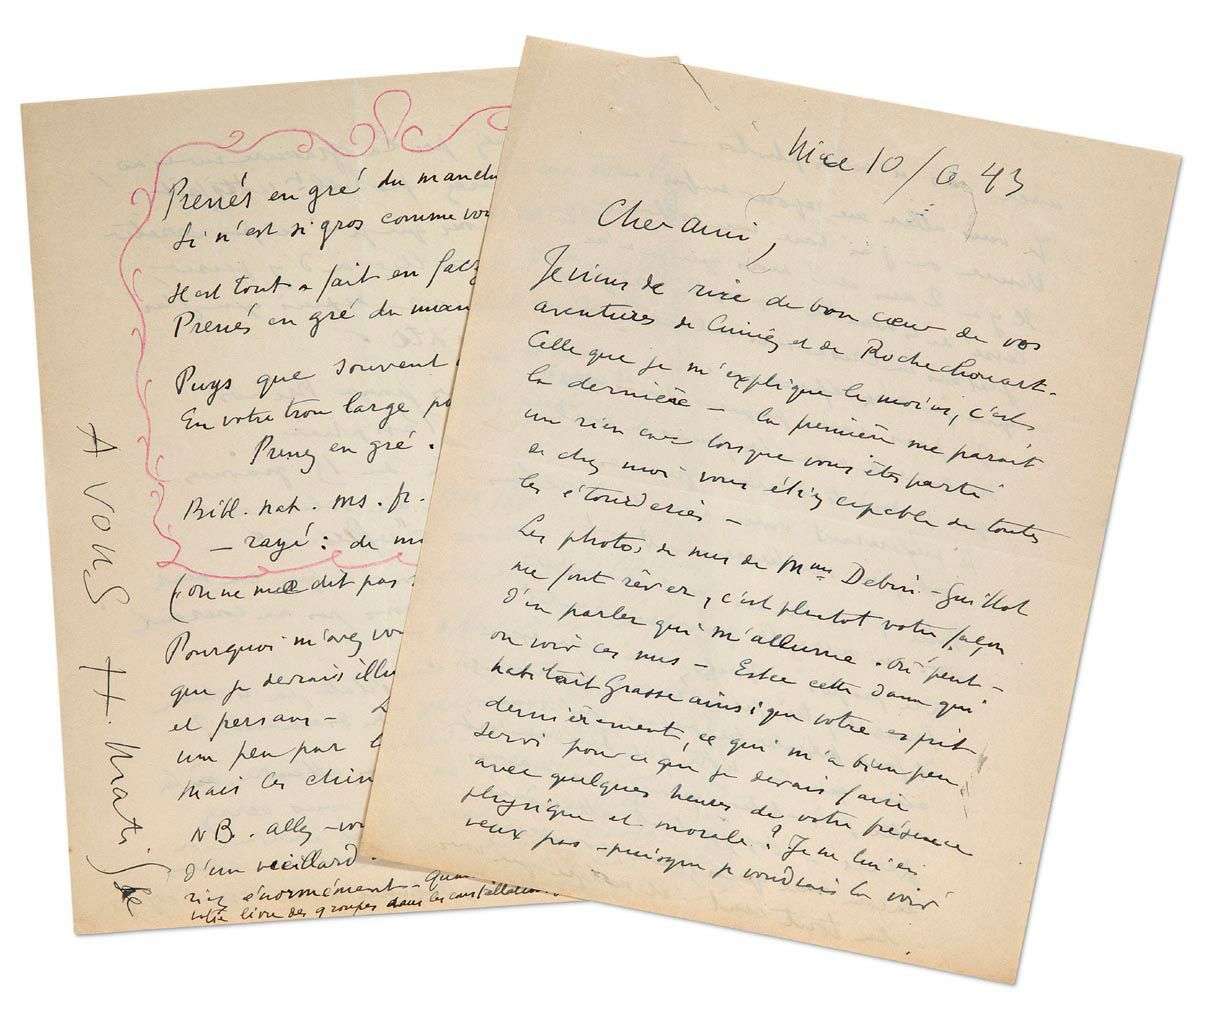 Prenés en gré du manch
Si n'est si gros comme vou
Il est tout a fait en faç
Prenés en gré du man
Puys que souvent
En votre tron large po
Prenez en gré.
Bibl. nat. ms. fr.
— rayé : de m
(on ne me dit pas
Pourquoi m'avez vou
que je devrais illu
et persans —
un peu par l
mais les chin
NB. allez-vou
d'un vieillard
riez énormément — qu
votre livre des groupes dans les constellation
A vous H. Matisse
Nice 10/ 43
Cher ami,
Je viens de rire de bon cœur de vos
aventures de Cimiez et de Rochechouart.
Celle que je m'explique le moins, c'est
la dernière — la première me parait
un rien car lorsque vous êtes parti
de chez moi vous étiez capable de toutes
les étourderies —
Les photos de nus de Mme Debiri-Guillot
me font rêver, c'est plutot votre façon
d'en parler qui m'allume. Où peut-
on voir ces nus — Est ce cette dame qui
habitait Grasse ainsi que votre esprit
dernièrement, ce qui m'a bien peu
servi pour ce que je devais faire
avec quelques heures de votre présence
physique et morale ? Je ne lui en
veux pas — puisque je voudrais la voir